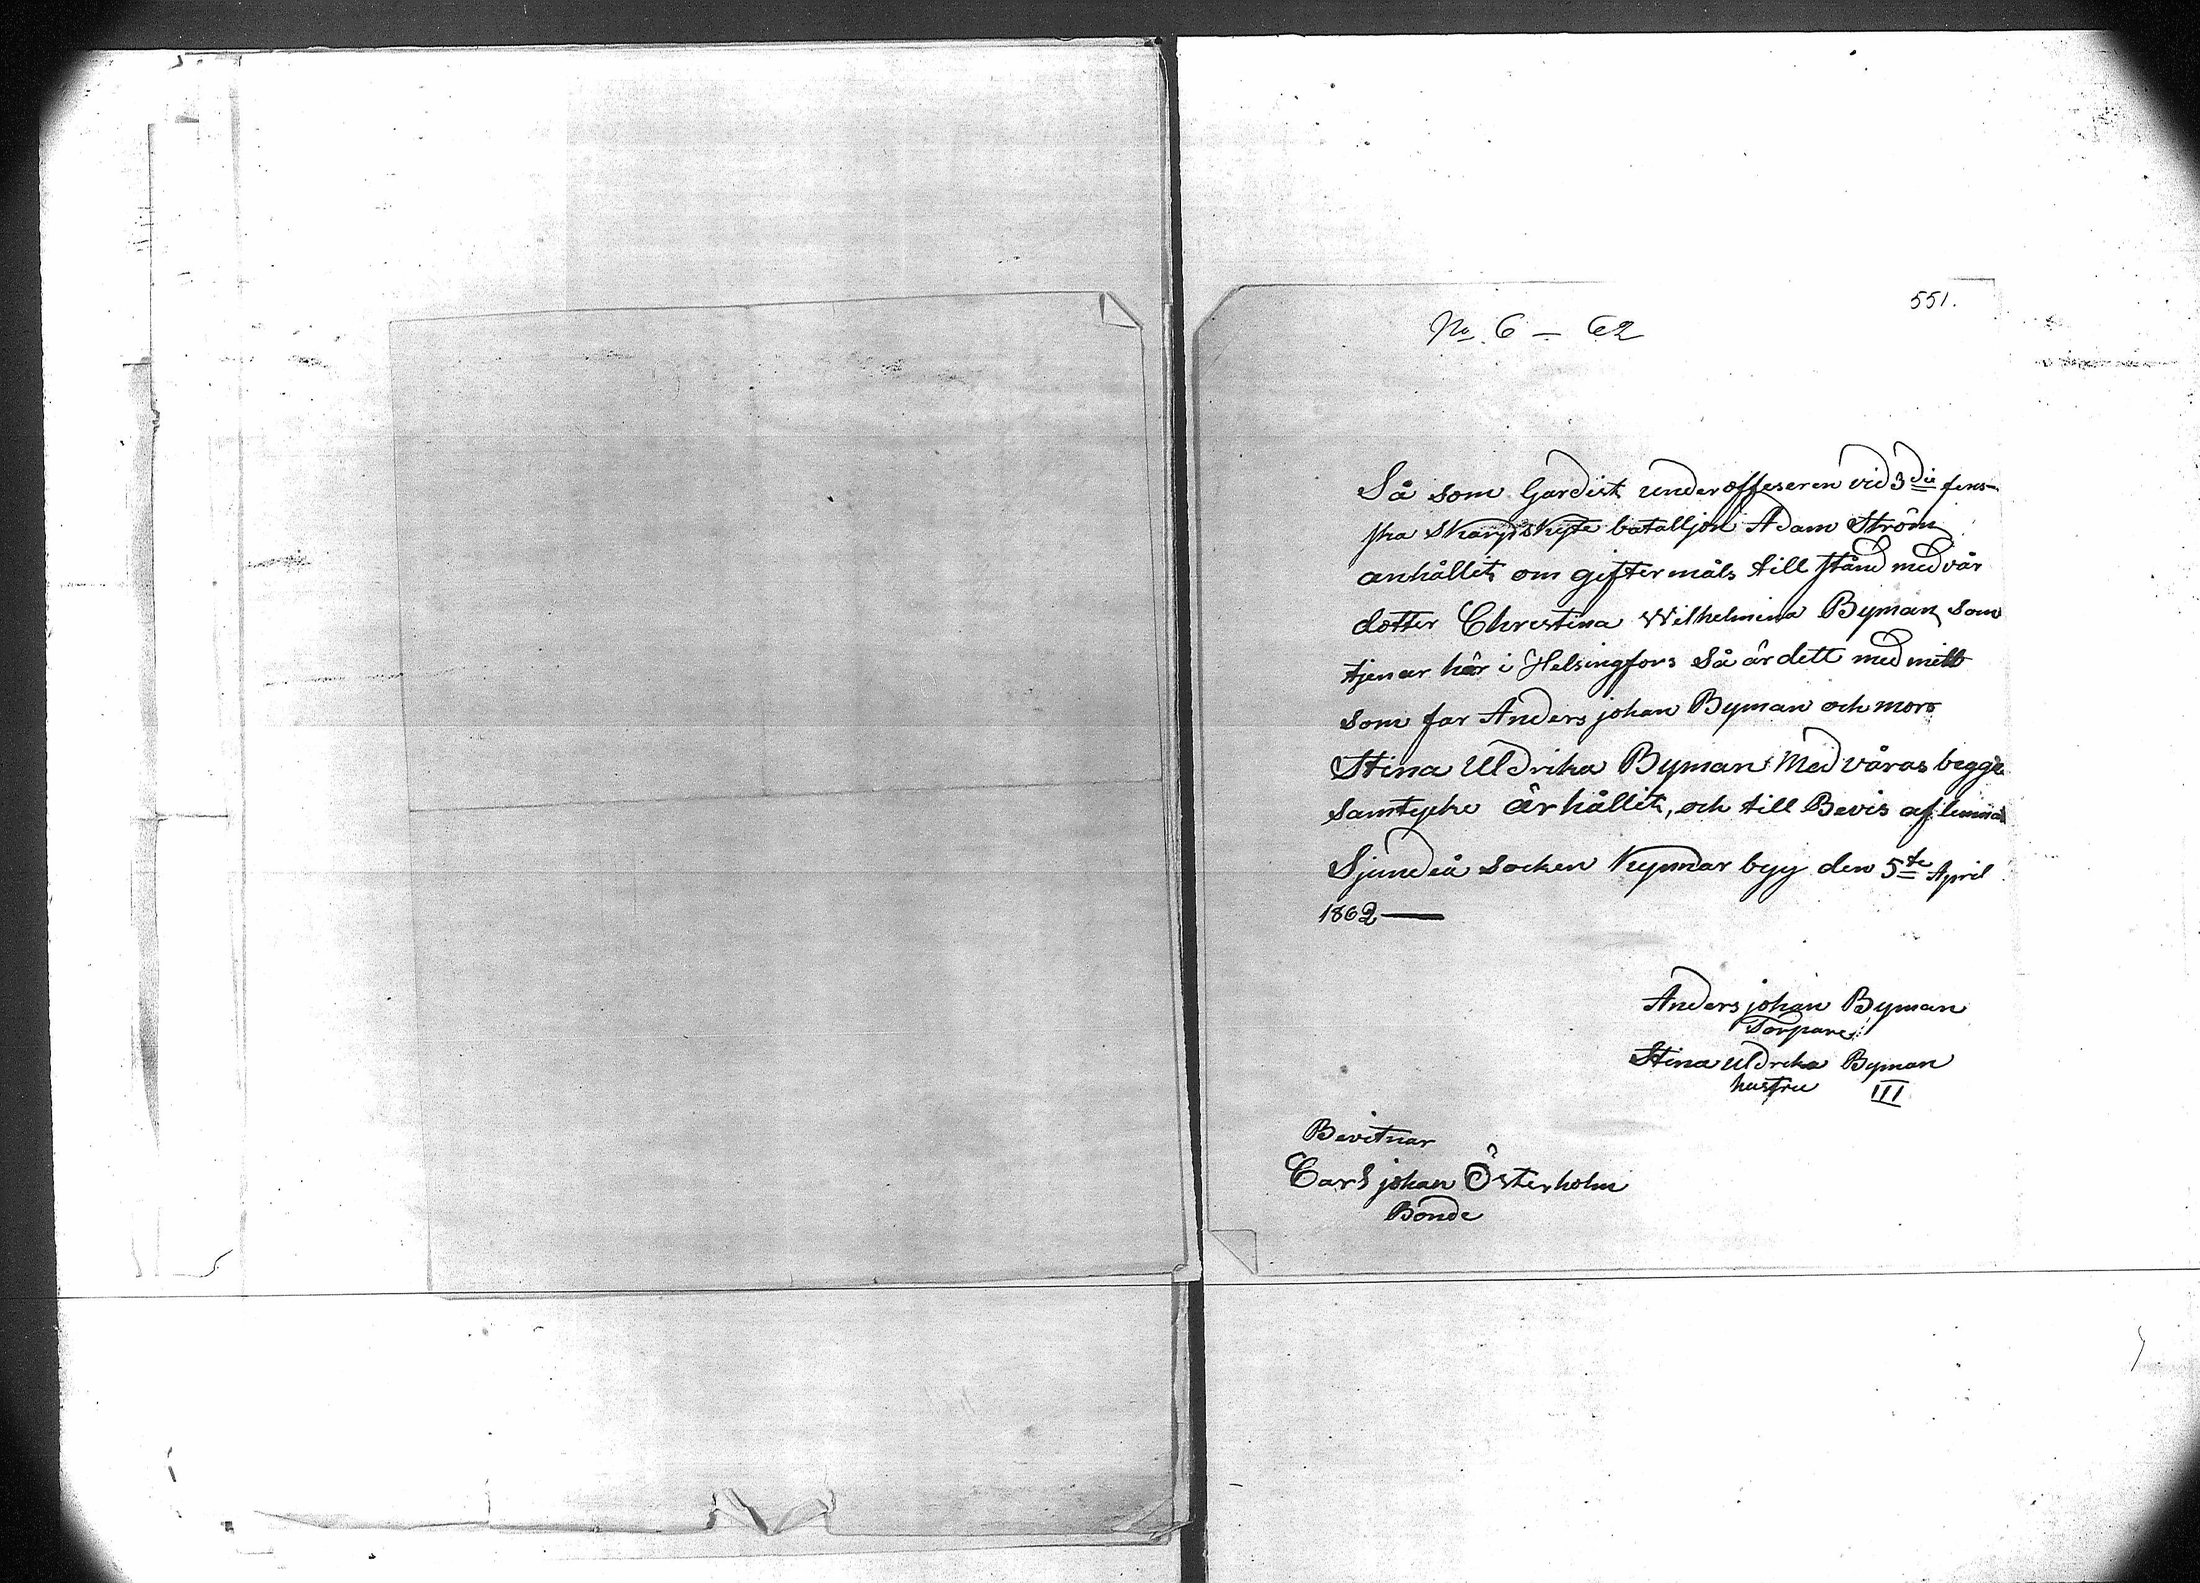 551.
No 6 — 62
Så som Gardist underoffeseren vid 3die fins-
ska Skarpskytte bataljon Adam Ström
anhållit om giftermåls till stånd med vår
dotter Christina Wilhelmina Byman som
tjenar här i Helsingfors Så är dett med mitt
som far Anders johan Byman och mors
Stina Uldrika Byman Med våras begge
samtycke är hållit, och till Bevis af lemnas
Sjundeå socken Kypmar byy den 5te April
1862 —
Anders johan Byman
Torpare
Stina Uldrika Byman
hustru III
Bevitnar
Carl johan Österholm
Bonde